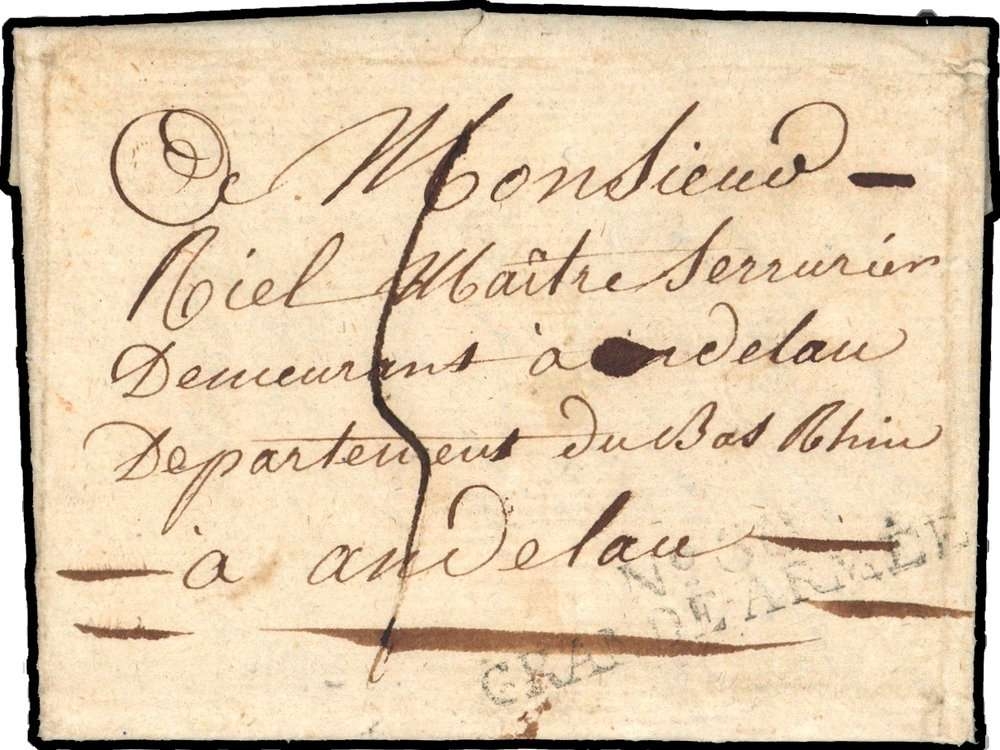 De Monsieur
Riel Maître Serrurier
Demeurant à andelau
Departement du Bas Rhin
à andelau
5
No
GRANDE-ARMÉE